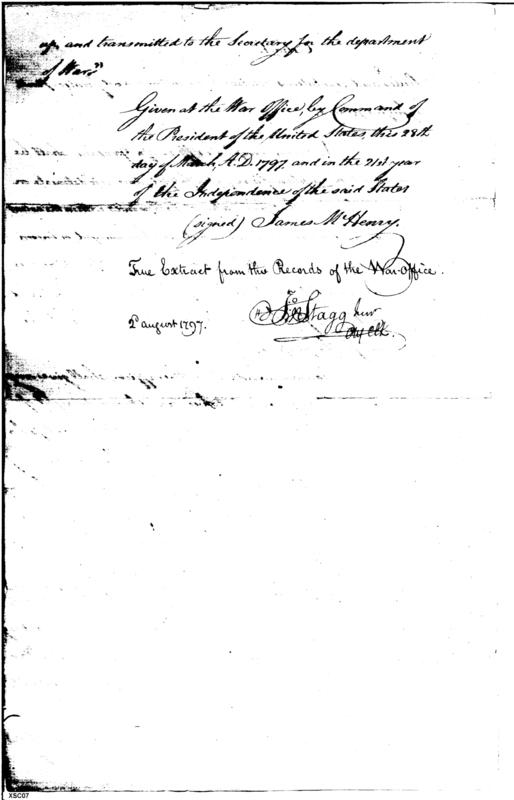 up and transmitted to the Secretary for the department
of War."
Given at the War Office, by Command of
the President of the United States, this 28th
day of March, A.D. 1797 and in the 21st year
of the Independence of the said States
(signed) James McHenry.
True Extract from the Records of the War-Office.
2d august 1797.
Jno Stagg Junr
Clk.
XSC07